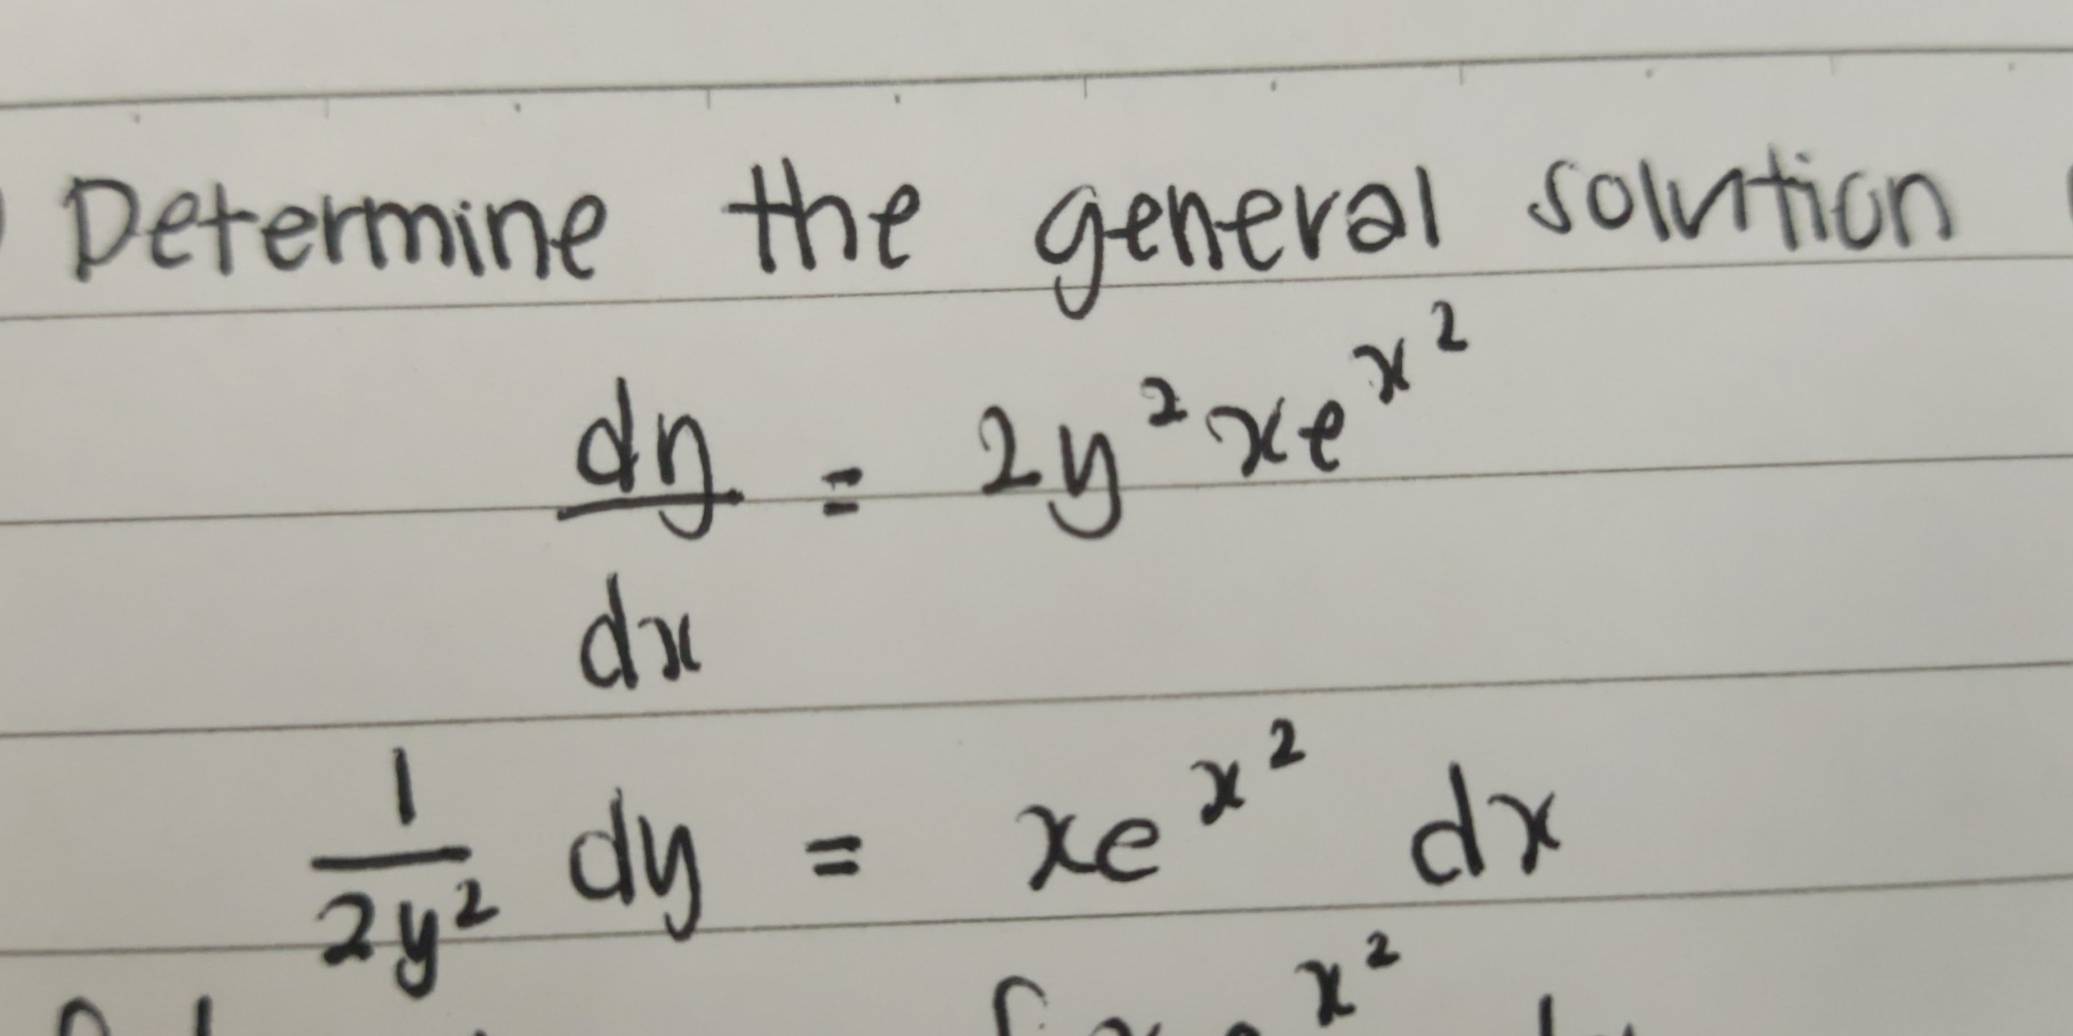 Determine the general solution
dy/dx = 2y²xe^x²
1/2y² dy = xe^x² dx
x²